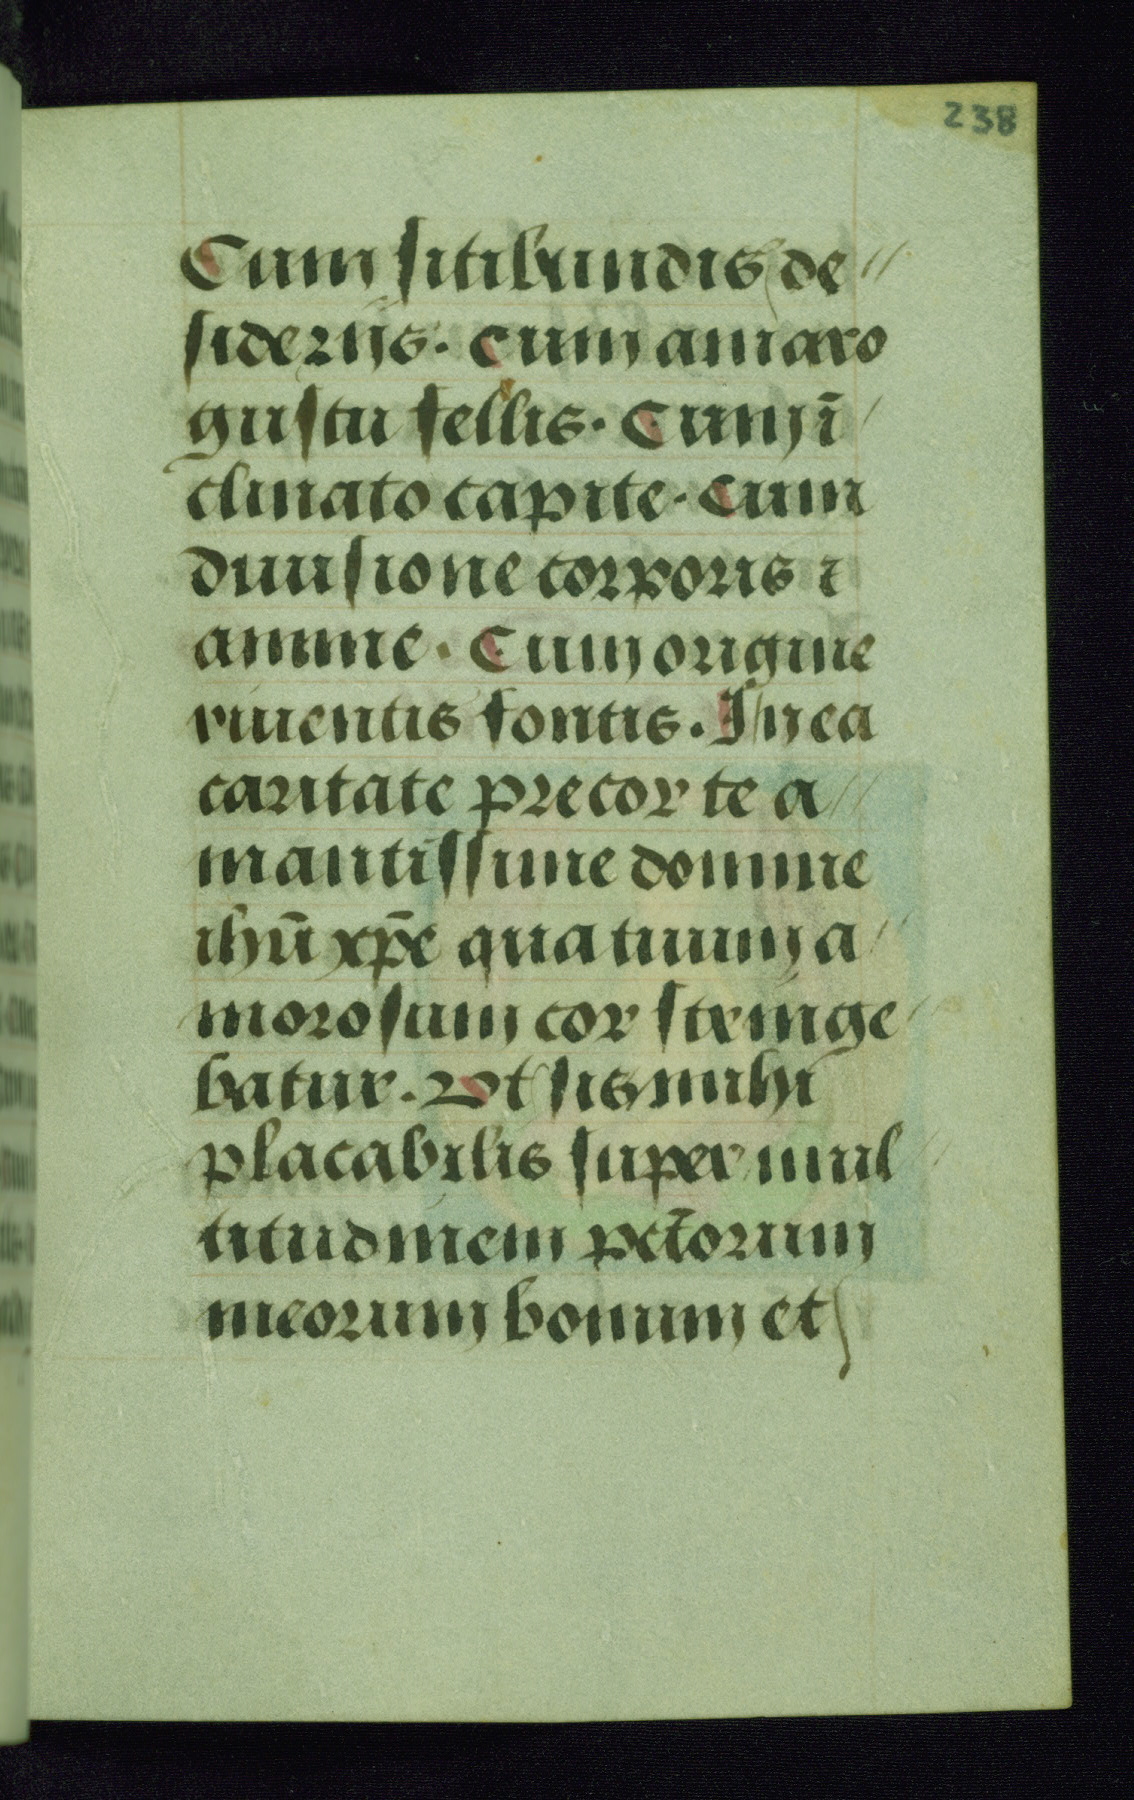 238
Cum sitibundis de
siderijs. Cum amaro
gustu fellis. Cum ī
clinato capite. Cum
diuisione corporis ⁊
anime. Cum origine
viuentis fontis. In ea
caritate precor te a
mantissime domine
ihū xp̄e qua tuum a
morosum cor stringe
batur. Vt sis mihi
placabilis super mul
titudinem pct̄orum
meorum bonum et